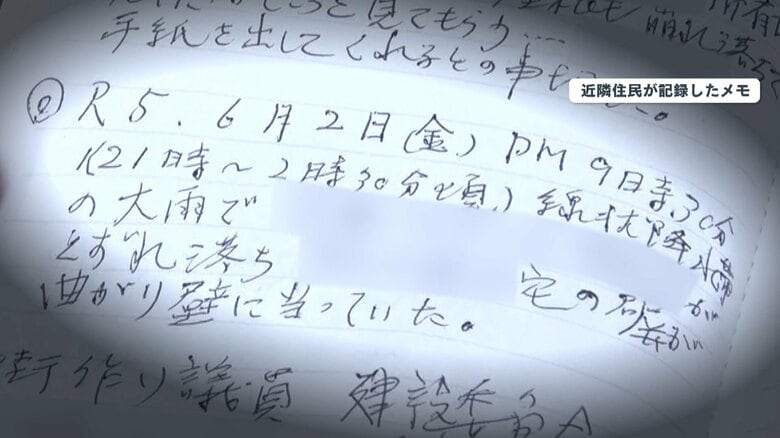 と見てもらう‥‥ 崩れ落ち
手紙を出してくれるとの事
近隣住民が記録したメモ
② R5.6月2日(金) PM9時30分
(21時～21時30分頃) 線状降水帯
の大雨で
くずれ落ち 宅の
曲がり壁に当っていた。
作り議員 建設委